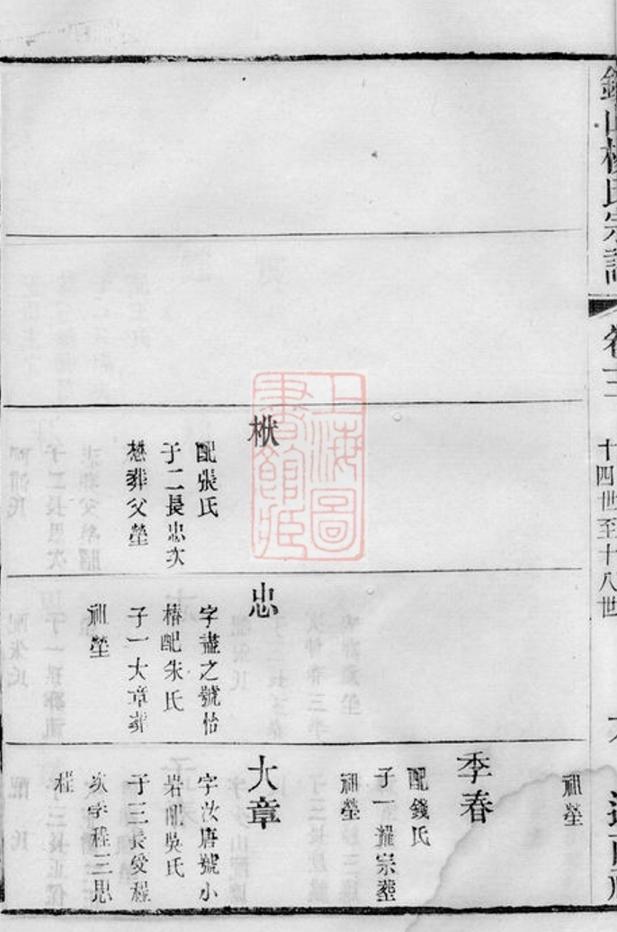 楊氏宗譜
卷三
十四世至十八世
栿
配張氏
子二長忠次
懋葬父塋
忠
字藎之號怡
椿配朱氏
子一大章葬
祖塋
祖塋
季春
配錢氏
子一耀宗葬
祖塋
大章
字汝唐號小
岩配吳氏
子三長受程
次學程三思
程
上海圖書館藏